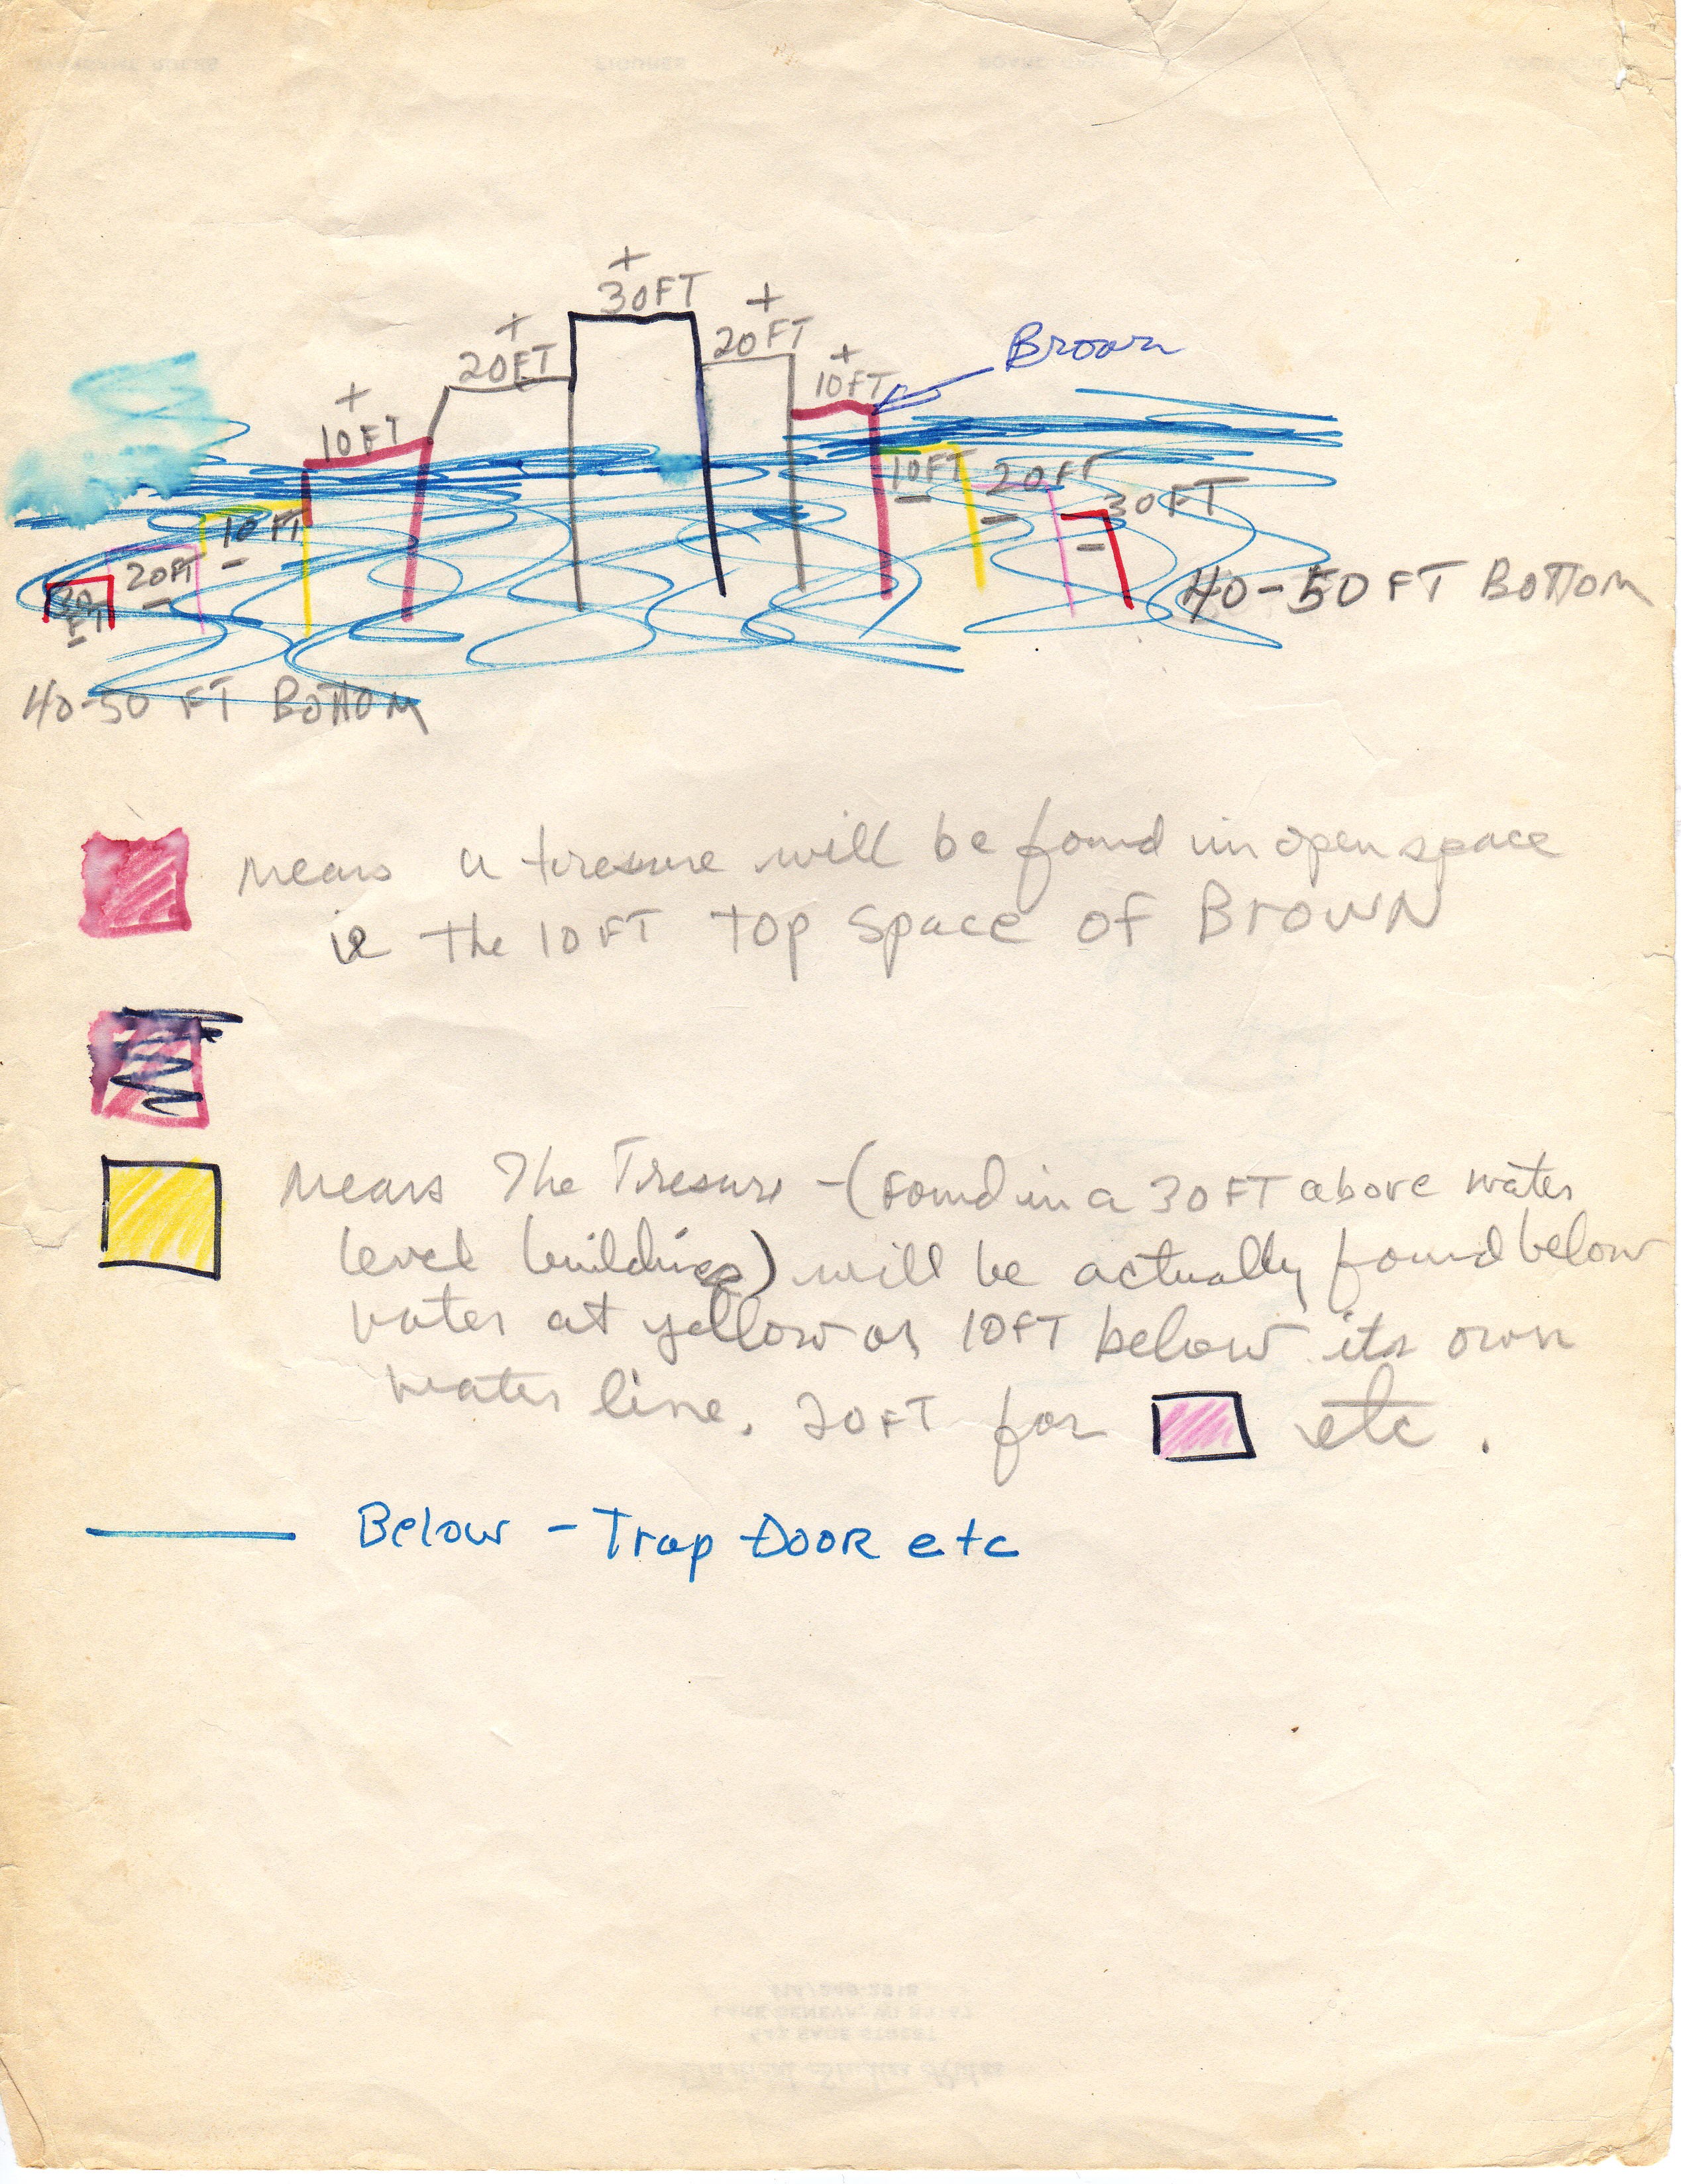 +
30FT
+
20FT
+
20FT
+
10FT
Brown
+
10FT
10FT
-
20FT
-
30FT
-
10FT
-
20FT
-
30
FT
-
40-50FT BOTTOM
40-50 FT BOTTOM
means a tresure will be found in open space
ie the 10FT top space of BROWN
means The Tresure - (found in a 30FT above water
level building) will be actually found below
water at yellow or 10FT below its own
water line. 20FT for etc.
Below - Trap DOOR etc